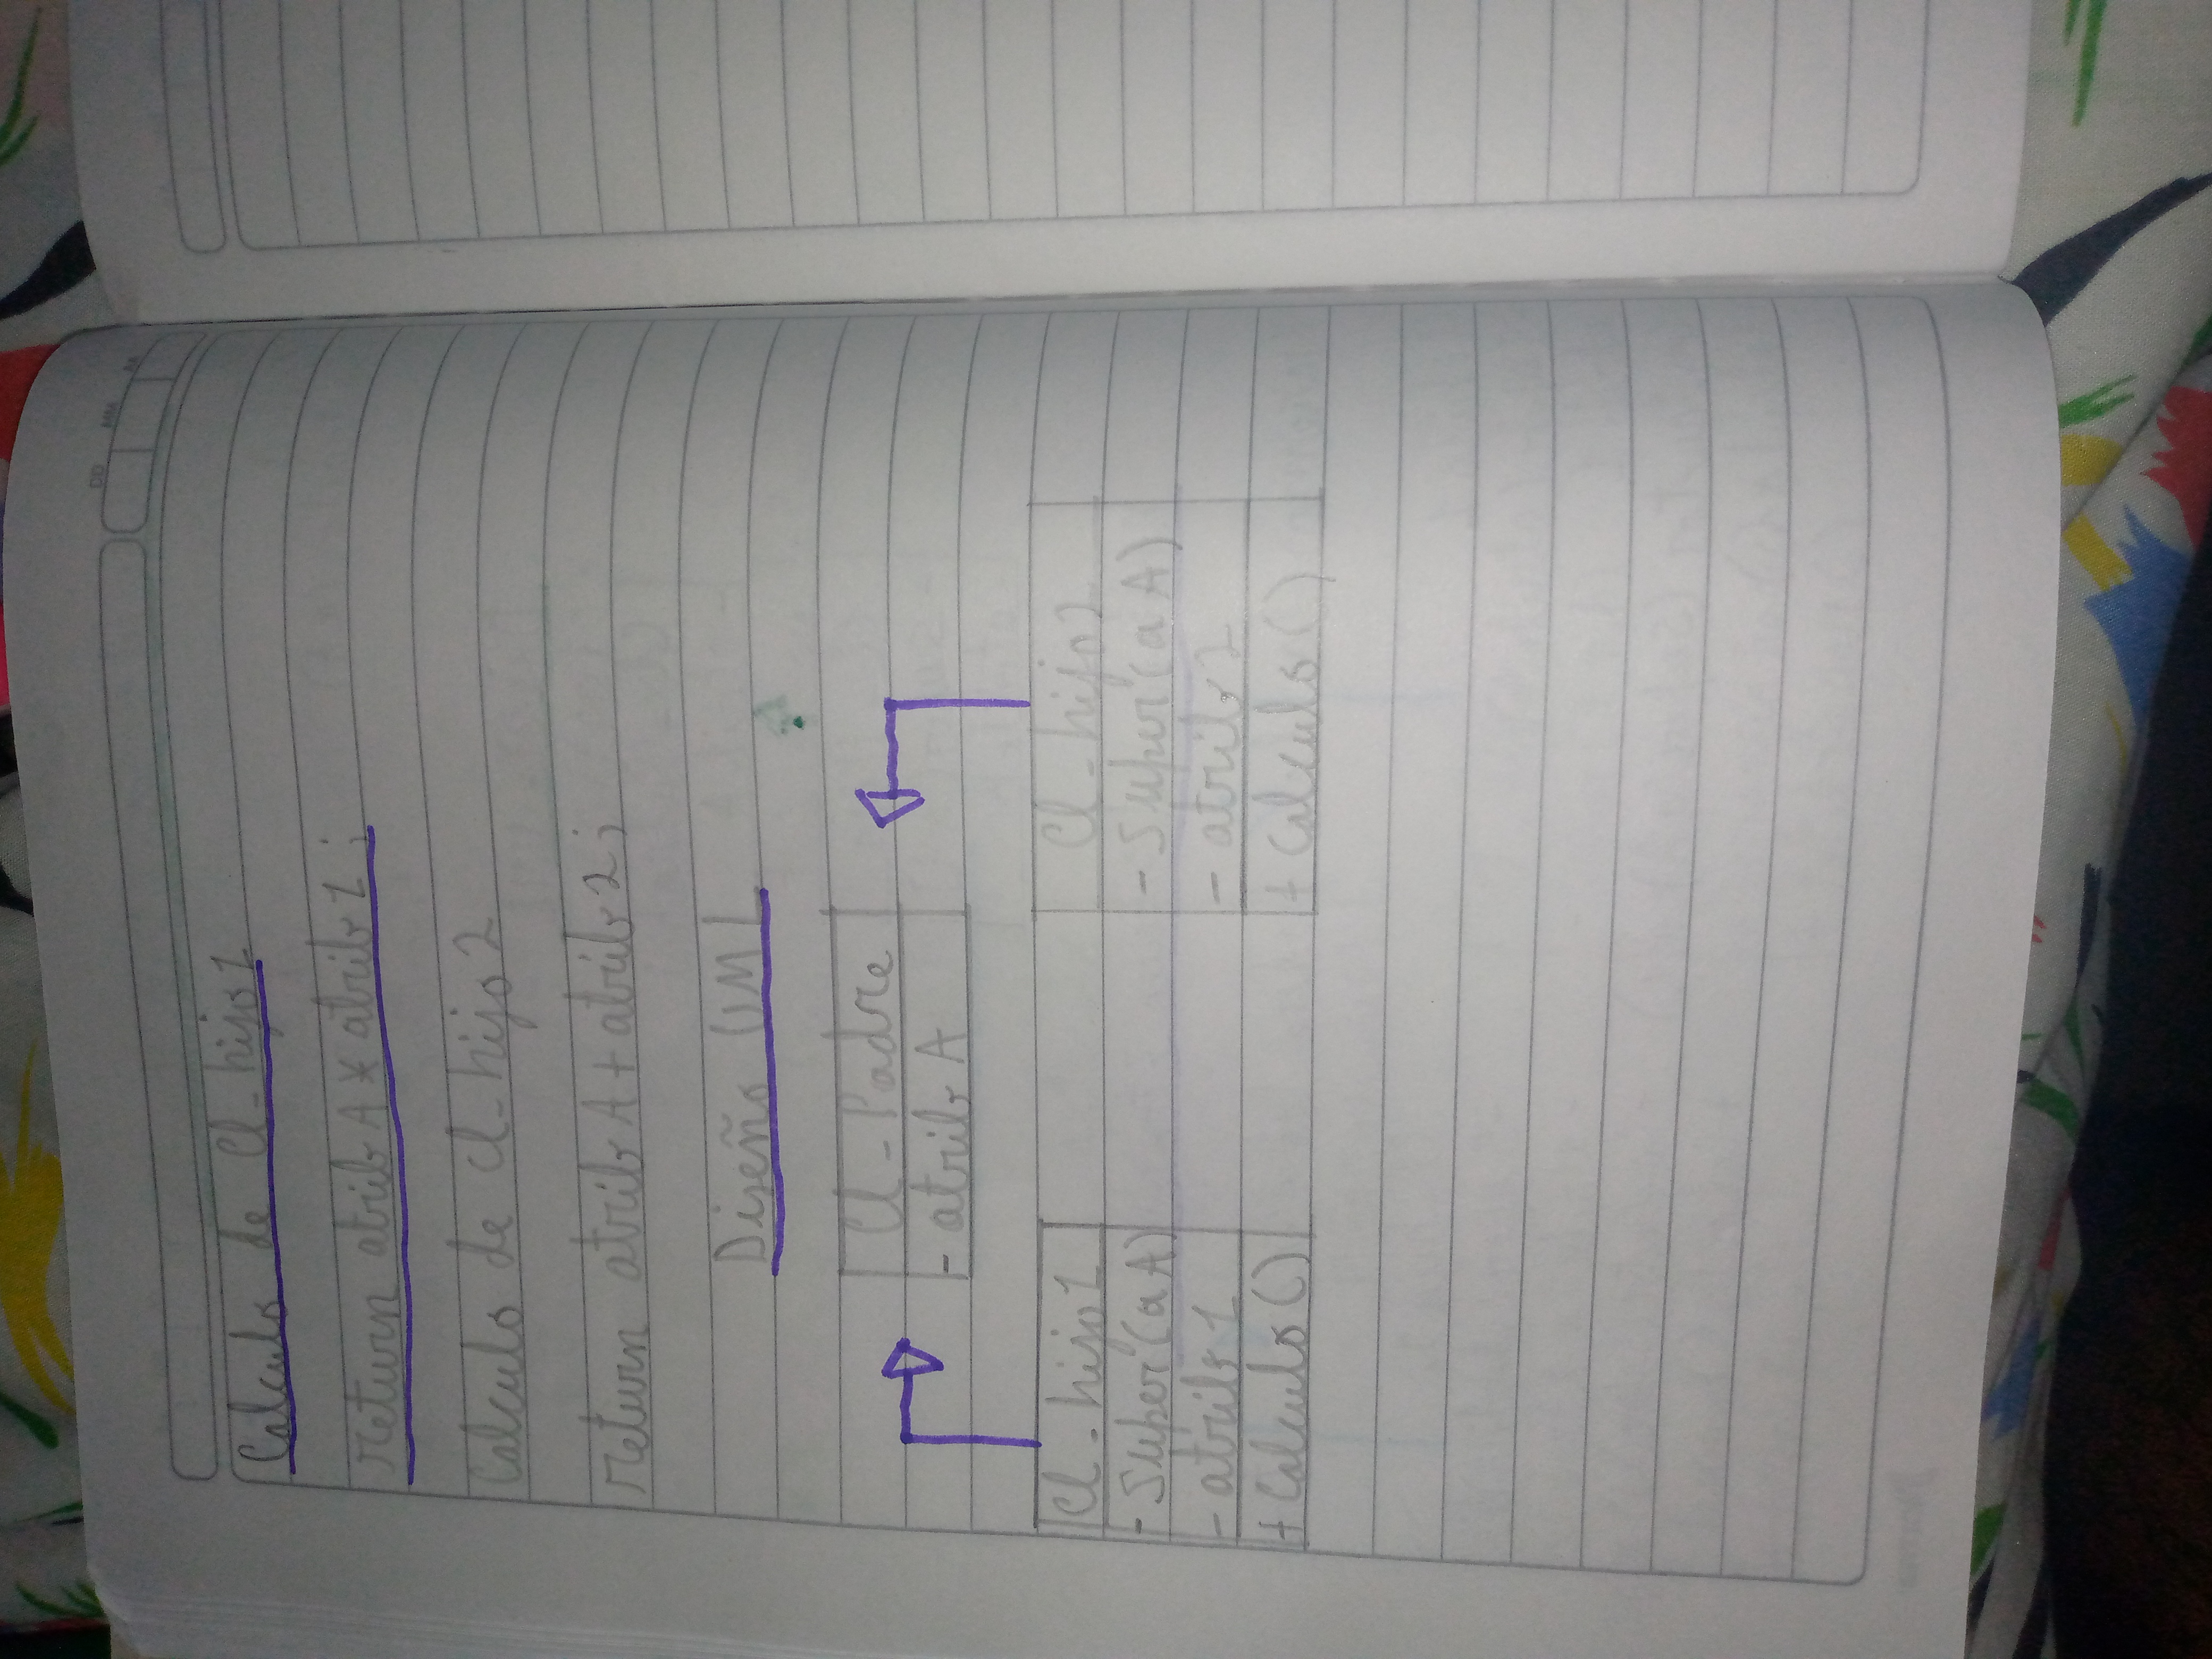 DD MM AA
Calculo de Cl_hijo1
return atribA * atrib1;
Calculo de Cl_hijo2
return atribA + atrib2;
Diseño UML
Cl_Padre
- atribA
Cl_hijo1
- Super(aA)
- atrib1
+ Calculo()
Cl_hijo2
- Super(aA)
- atrib2
+ Calculo()